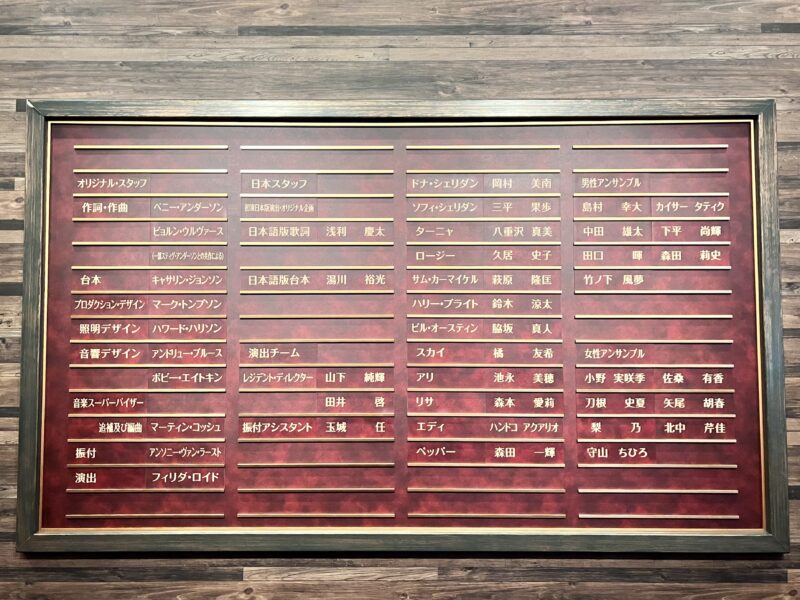 オリジナル・スタッフ
作詞・作曲 ベニー・アンダーソン
ビョルン・ウルヴァース
(一部スティグ・アンダーソンとの共作による)
台本 キャサリン・ジョンソン
プロダクション・デザイン マーク・トンプソン
照明デザイン ハワード・ハリソン
音響デザイン アンドリュー・ブルース
ボビー・エイトキン
音楽スーパーバイザー
追補及び編曲 マーティン・コッシュ
振付 アンソニー・ヴァン・ラースト
演出 フィリダ・ロイド
日本スタッフ
初演日本版演出・オリジナル企画
日本語版歌詞 浅利 慶太
日本語版台本 湯川 裕光
演出チーム
レジデント・ディレクター 山下 純輝
田井 啓
振付アシスタント 玉城 任
ドナ・シェリダン 岡村 美南
ソフィ・シェリダン 三平 果歩
ターニャ 八重沢 真美
ロージー 久居 史子
サム・カーマイケル 萩原 隆匡
ハリー・ブライト 鈴木 涼太
ビル・オースティン 脇坂 真人
スカイ 橘 友希
アリ 池永 美穂
リサ 森本 愛莉
エディ ハンドコ アクアリオ
ペッパー 森田 一輝
男性アンサンブル
島村 幸大 カイサー タティク
中田 雄太 下平 尚輝
田口 暉 森田 莉史
竹ノ下 風夢
女性アンサンブル
小野 実咲季 佐桑 有香
刀根 史夏 矢尾 胡春
梨 乃 北中 芹佳
守山 ちひろ